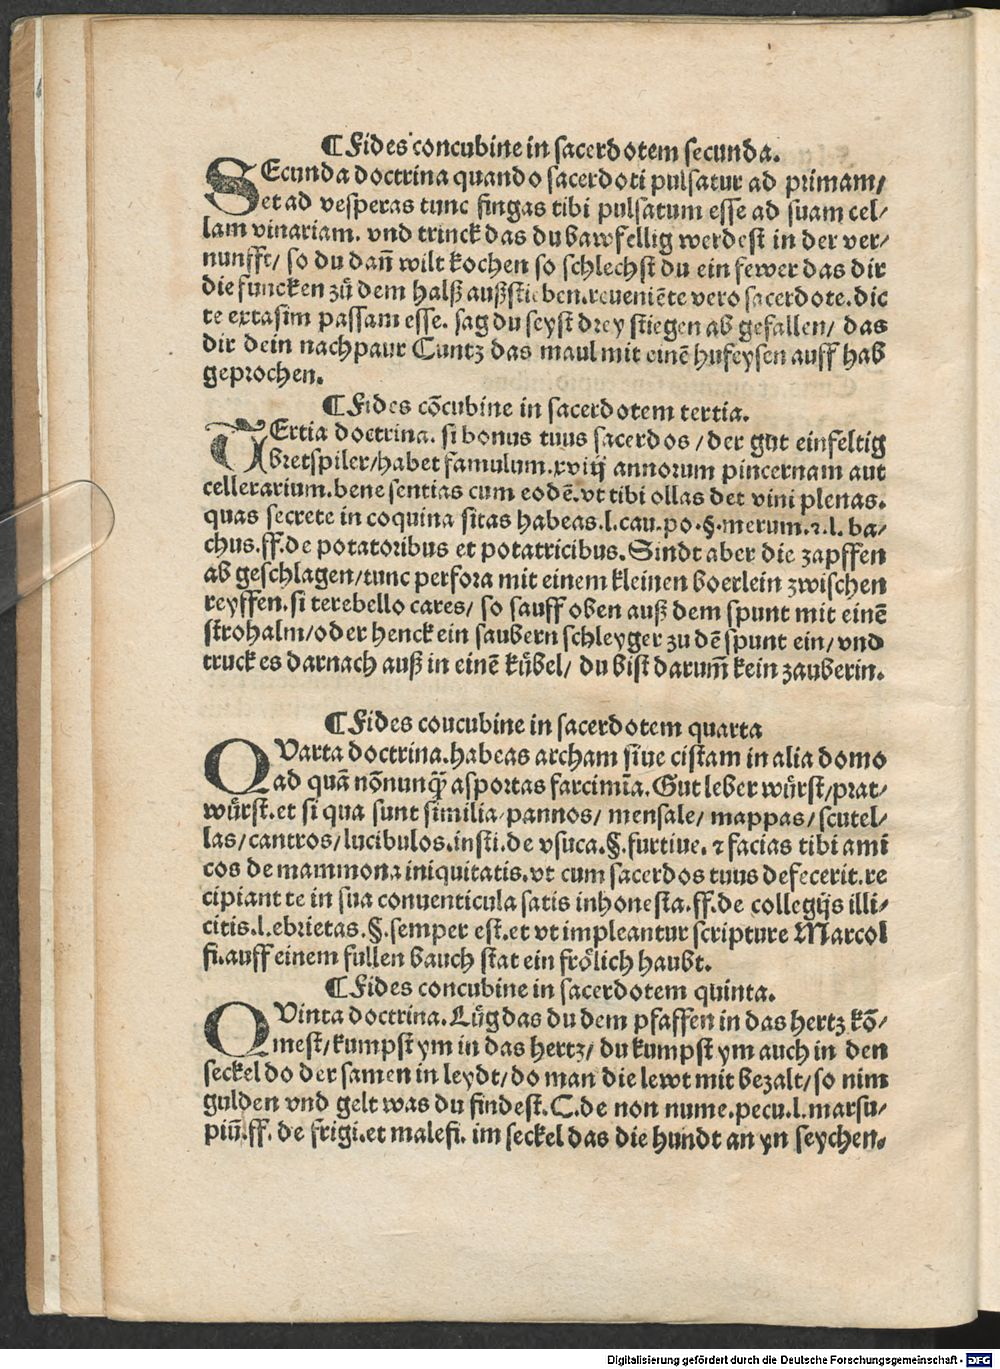 ¶Fides concubine in sacerdotem secunda.
SEcunda doctrina quando sacerdoti pulsatur ad primam/
et ad vesperas tunc fingas tibi pulsatum esse ad suam cel/
lam vinariam. vnd trinck das du bawfellig werdest in der ver/
nunfft/ so du dañ wilt kochen so schlechst du ein fewer das dir
die funcken zů dem halß außstieben.reueniēte vero sacerdote.dic
te extasim passam esse. sag du seyst drey stiegen ab gefallen/ das
dir dein nachpaur Cuntz das maul mit einē hufeysen auff hab
geprochen.
¶Fides cōcubine in sacerdotem tertia.
TErtia doctrina. si bonus tuus sacerdos/der gut einfeltig
bretspiler/habet famulum.xviij annorum pincernam aut
cellerarium.bene sentias cum eodē.vt tibi ollas det vini plenas.
quas secrete in coquina sitas habeas.l.cau.po.§.merum.⁊.l. ba/
chus.ff.de potatoribus et potatricibus.Sindt aber die zapffen
ab geschlagen/tunc perfora mit einem kleinen boerlein zwischen
reyffen.si terebello cares/ so sauff oben auß dem spunt mit einē
strohalm/oder henck ein saubern schleyger zu dē spunt ein/vnd
truck es darnach auß in einē kůbel/ du bist darum̄ kein zauberin.
¶Fides coucubine in sacerdotem quarta
QVarta doctrina.habeas archam siue cistam in alia domo
ad quā nōnunq̄ asportas farcimīa.Gut leber wůrst/prat/
wůrst.et si qua sunt similia/pannos/ mensale/ mappas/scutel/
las/cantros/lucibulos.insti.de vsuca.§.furtiue. ⁊ facias tibi ami
cos de mammona iniquitatis.vt cum sacerdos tuus defecerit.re
cipiant te in sua conuenticula satis inhonesta.ff.de collegijs illi/
citis.l.ebrietas.§.semper est.et vt impleantur scripture Marcol
fi.auff einem fullen bauch stat ein frölich haubt.
¶Fides concubine in sacerdotem quinta.
QVinta doctrina.Lůg das du dem pfaffen in das hertz kō/
mest/kumpst ym in das hertz/ du kumpst ym auch in den
seckel do der samen in leydt/do man die lewt mit bezalt/so nim
gulden vnd gelt was du findest.C.de non nume.pecu.l.marsu/
piū.ff. de frigi.et malefi. im seckel das die hundt an yn seychen.
Digitalisierung gefördert durch die Deutsche Forschungsgemeinschaft - DFG